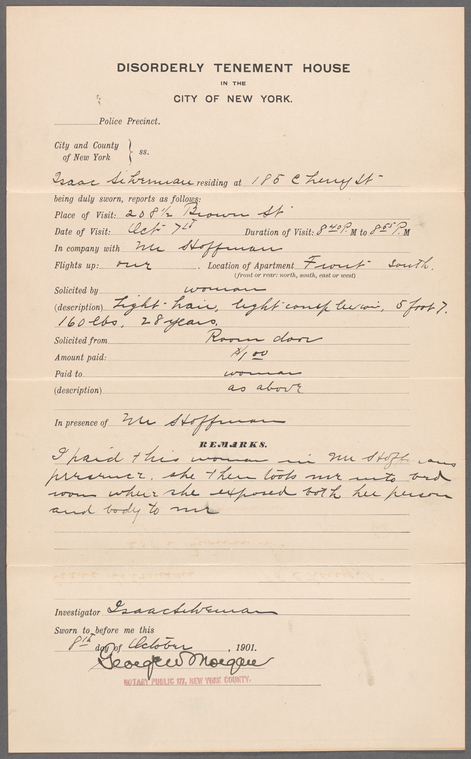 DISORDERLY TENEMENT HOUSE
IN THE
CITY OF NEW YORK.
Police Precinct.
City and County
of New York } ss.
Isaac Silverman residing at 185 Cherry St
being duly sworn, reports as follows:
Place of Visit: 208½ Broom St
Date of Visit: Oct 7th Duration of Visit: 8 40 P. M to 8 55 P. M
In company with Mr Hoffman
Flights up: one. Location of Apartment Front South.
(front or rear: north, south, east or west)
Solicited by woman
(description) Light-hair, light complexion, 5 foot 7.
160 lbs, 28 years.
Solicited from Room door
Amount paid: $1.00
Paid to woman
(description) as above
In presence of Mr Hoffman
REMARKS.
I paid this woman in Mr Hoffmans
presence. she then took me into bed
room where she exposed both her person
and body to me
Investigator Isaac Silverman
Sworn to before me this
8th day of October, 1901.
George W Morgan
NOTARY PUBLIC 177, NEW YORK COUNTY.